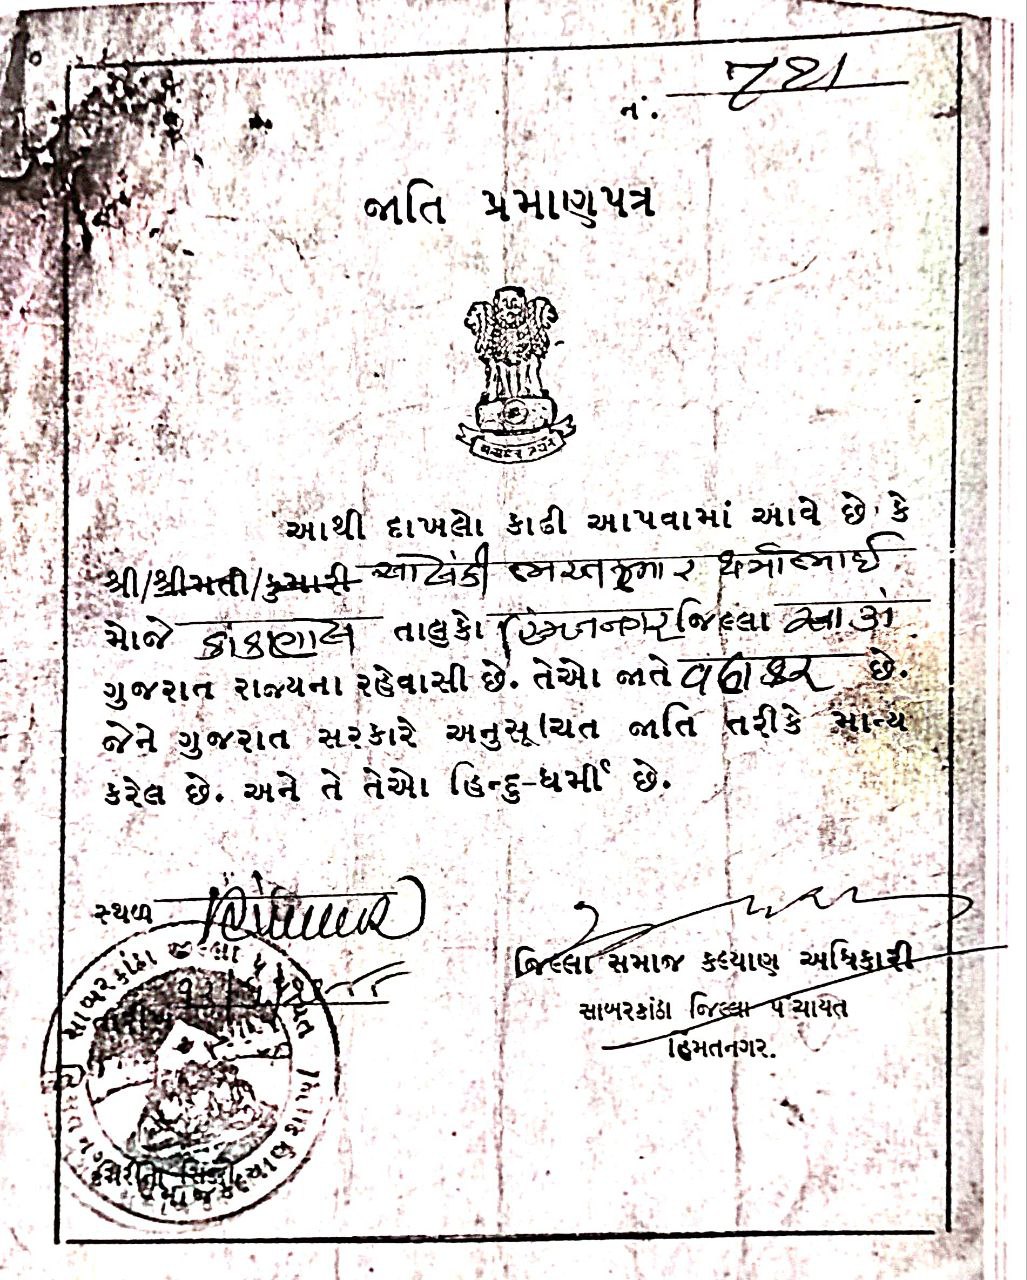 નં. ૭૨૧
જાતિ પ્રમાણપત્ર
આથી દાખલો કાઢી આપવામાં આવે છે કે
શ્રી/શ્રીમતી/કુમારી ભરતકુમાર ધર્માભાઈ
મોજે કાંકણોલ તાલુકો હિંમતનગર જિલ્લા સા.કાં
ગુજરાત રાજ્યના રહેવાસી છે. તેઓ જાતે વણકર છે.
જેને ગુજરાત સરકારે અનુસૂચિત જાતિ તરીકે માન્ય
કરેલ છે. અને તે તેઓ હિન્દુ-ધર્મી છે.
સ્થળ
જિલ્લા સમાજ કલ્યાણ અધિકારી
સાબરકાંઠા જિલ્લા પંચાયત
હિંમતનગર.
સાબરકાંઠા જીલ્લા પંચાયત